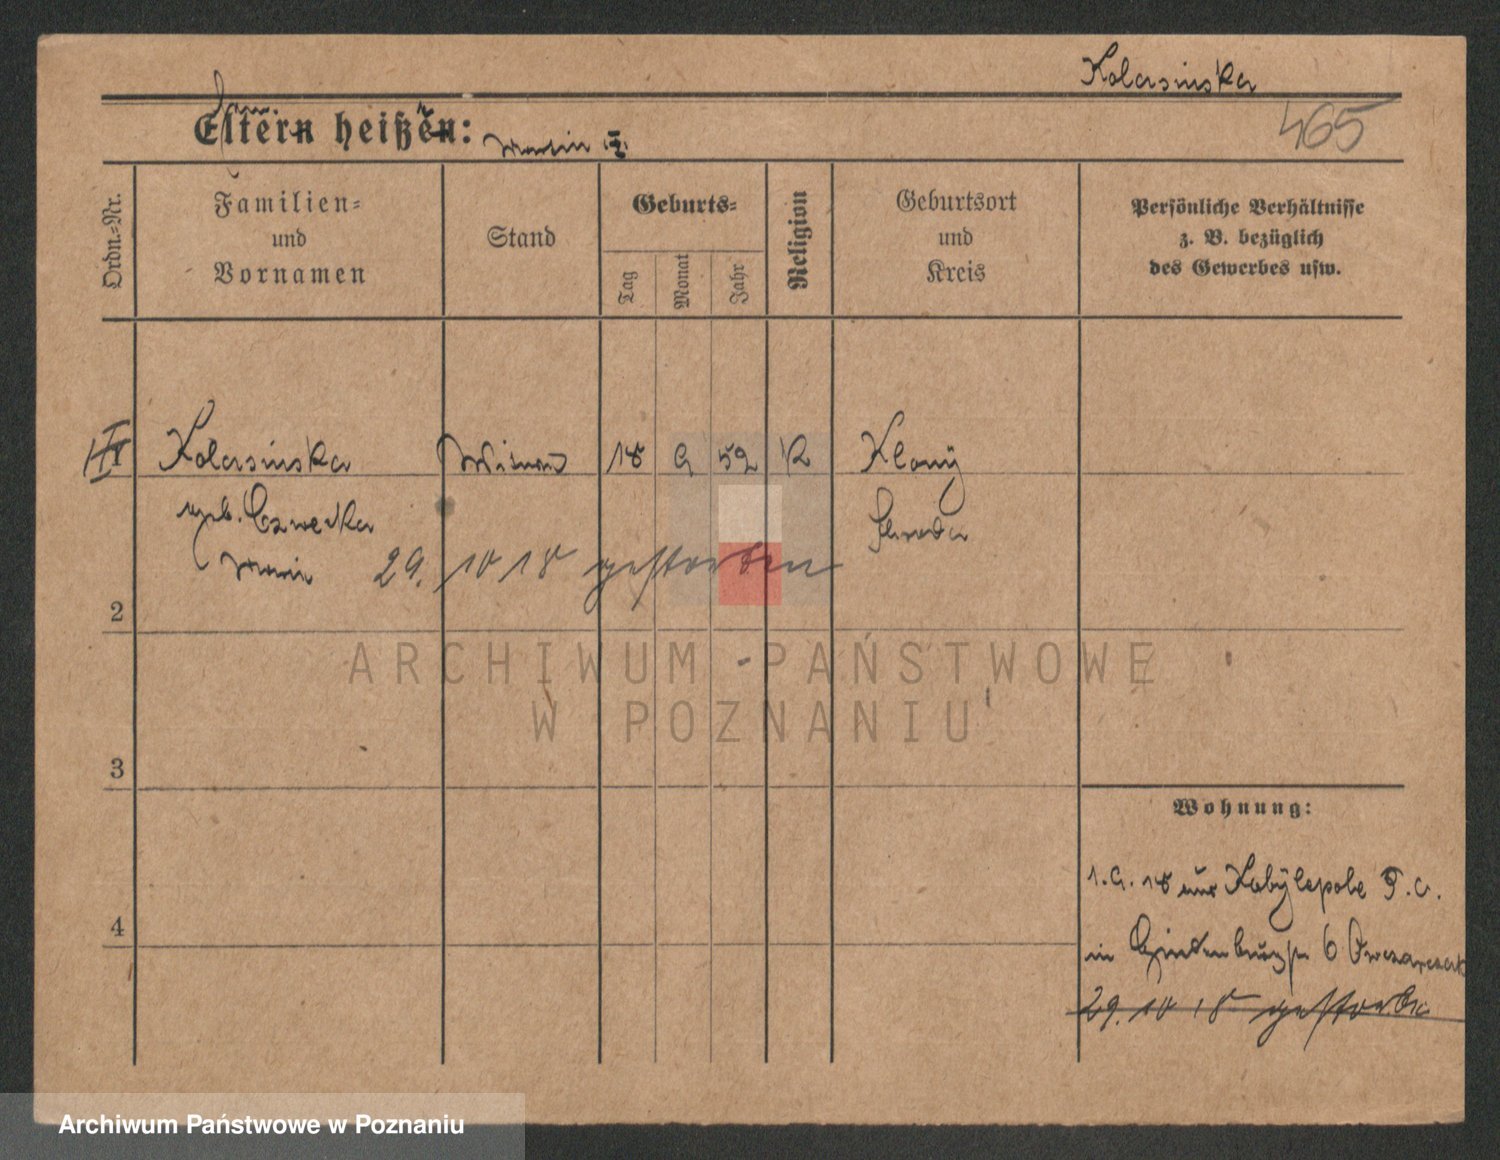 Kolasinska
465
Eltern heißen:
Ordn.-Nr.
Familien-
und
Vornamen
Stand
Geburts-
Tag
Monat
Jahr
Religion
Geburtsort
und
Kreis
Persönliche Verhältnisse
z. B. bezüglich
des Gewerbes usw.
1 Kolasinska 18 52 K Klony
geb. Schroda
29. 10 18 gestorben
2
ARCHIWUM PAŃSTWOWE
W POZNANIU
3
Wohnung:
18 aus Kobylepole
4
in 6 Owczarczak
29. 10 18 gestorben
Archiwum Państwowe w Poznaniu